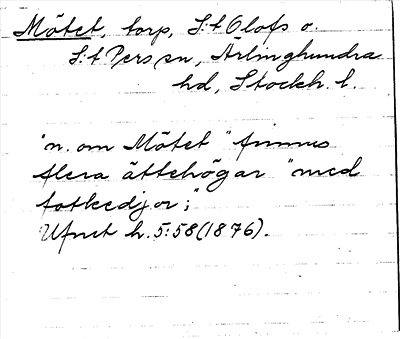 Mötet, torp, S:t Olofs o.
S:t Pers sn, Ärlinghundra
hd, Stockh. l.
"n. om Mötet" finnas
flera ättehögar "med
fotkedjor;"
Ufnet h. 5:58 (1876).